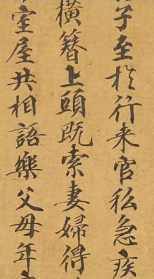 子至於行来官私急疾
橫簪上頭既索妻婦得
室屋共相語樂父母年